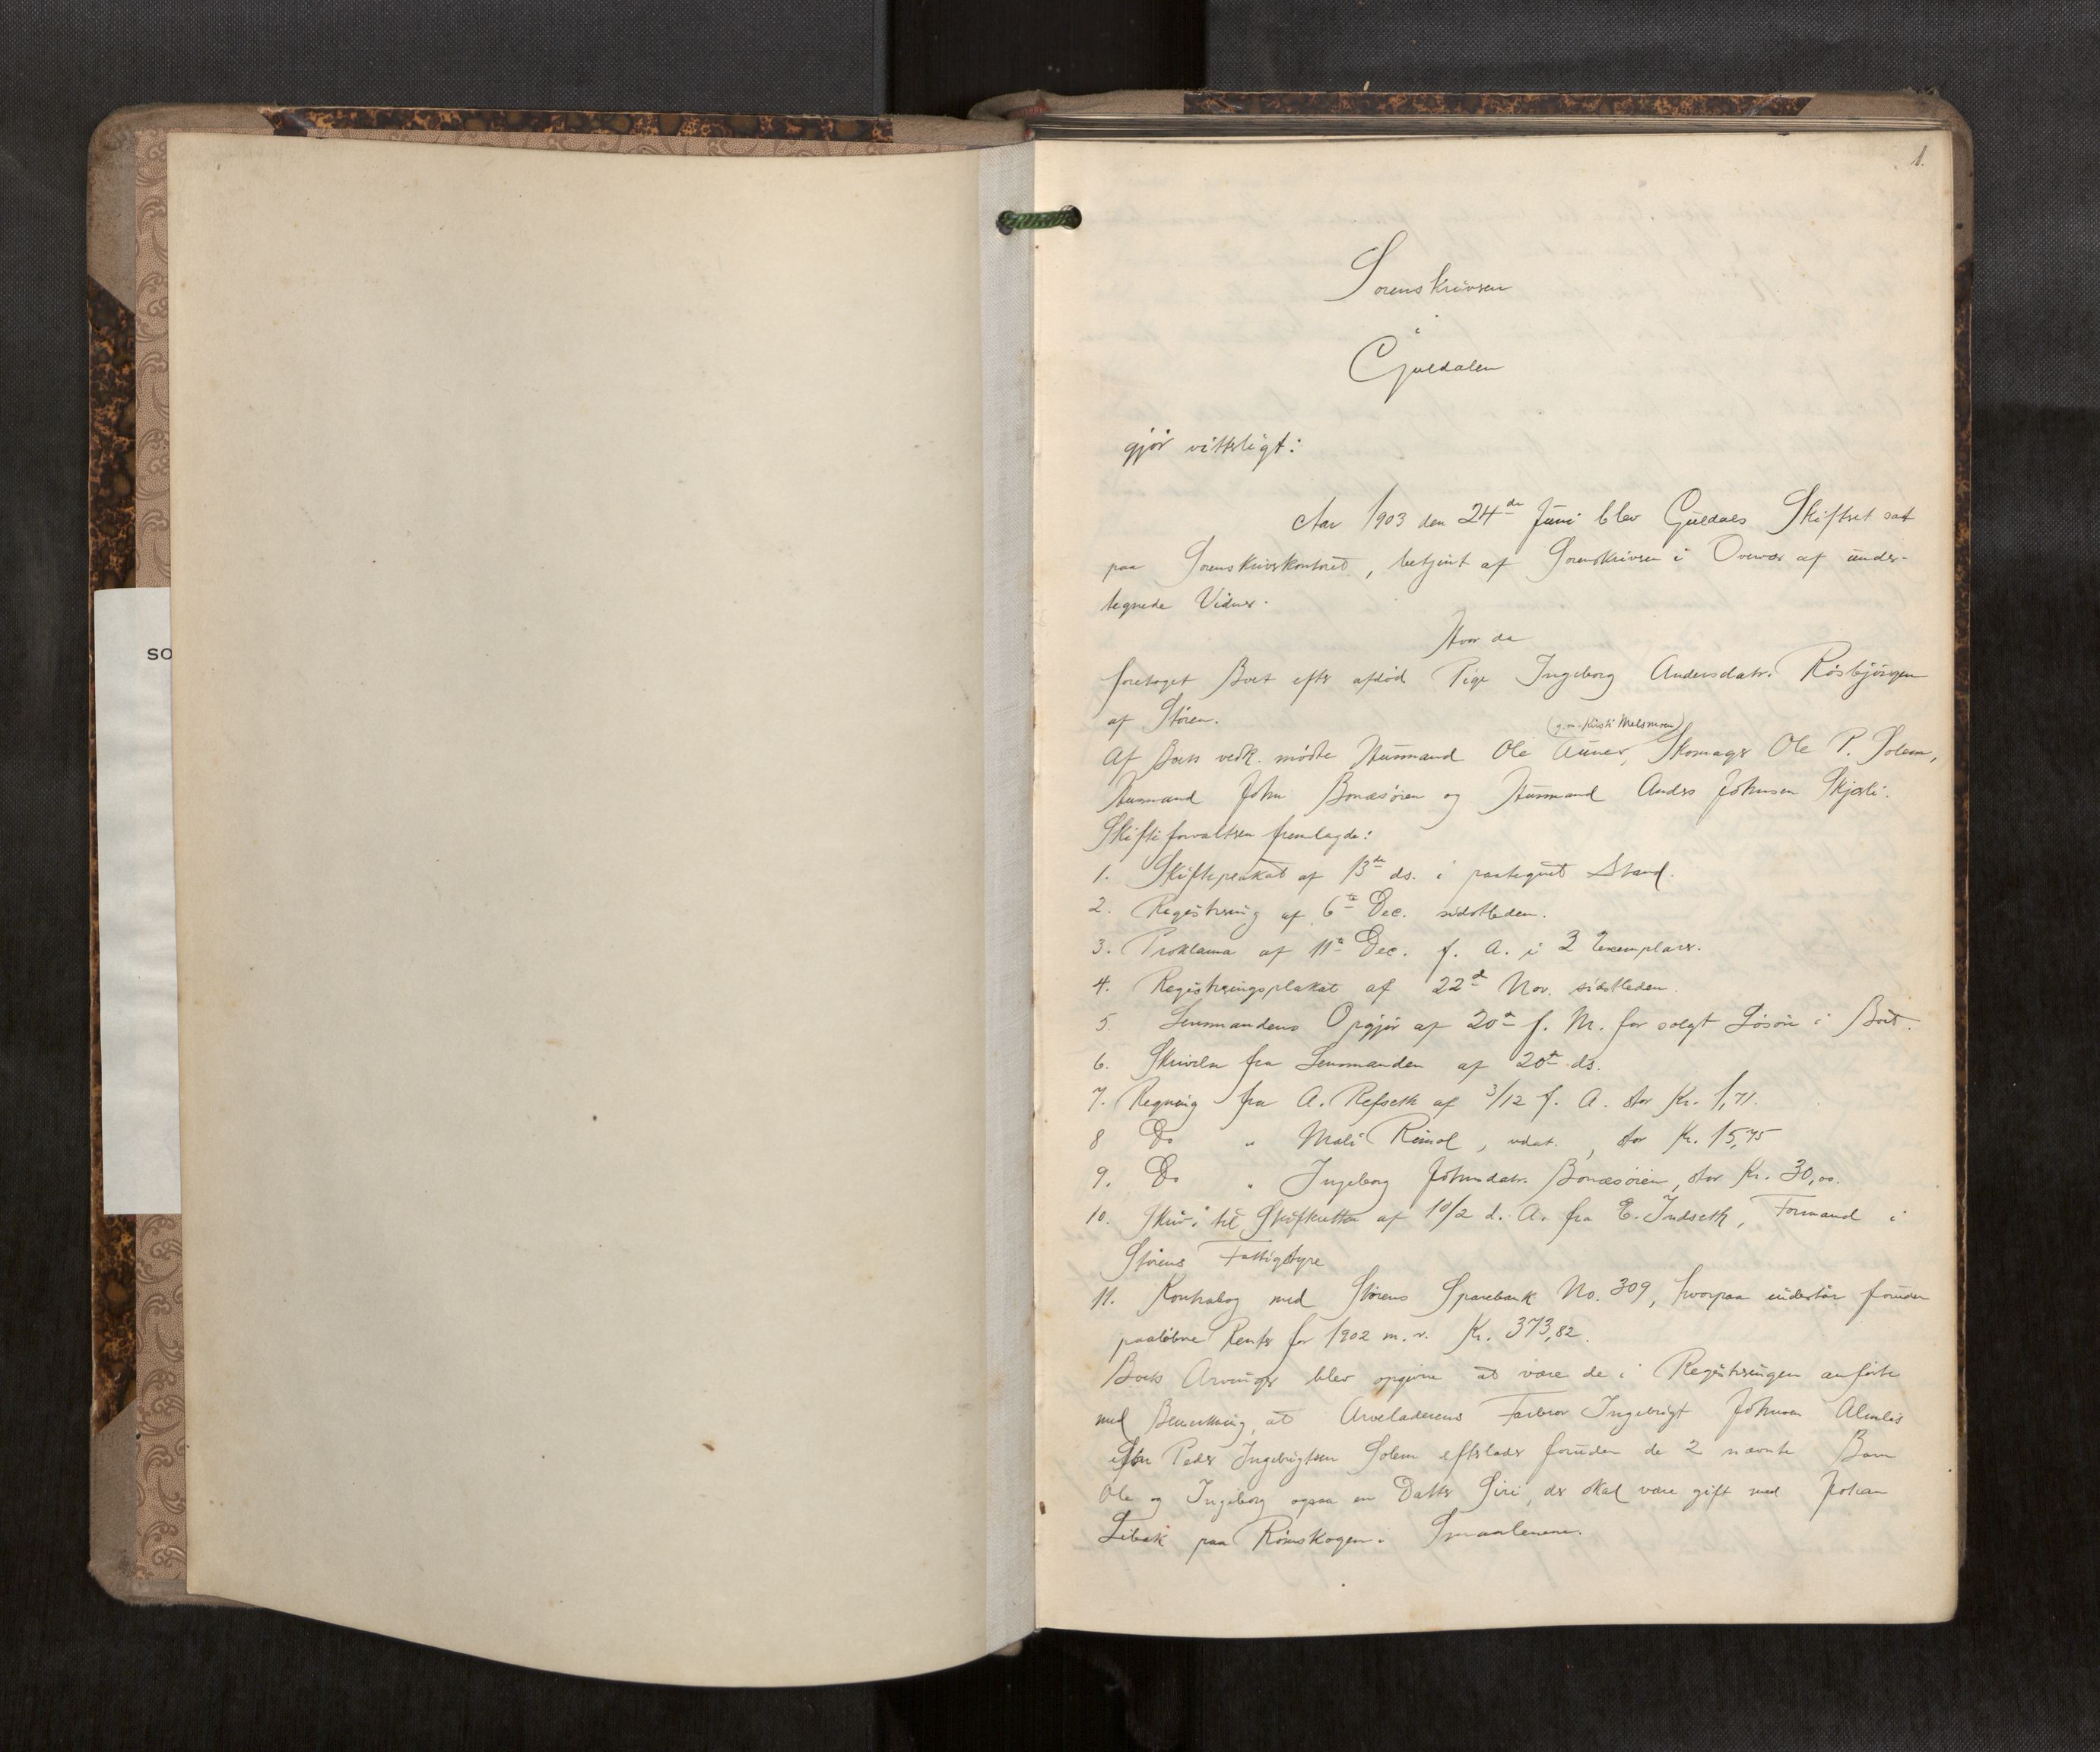 1.
Sorenskriveren
i
Guldalen
gjør vitterligt:
Aar 1903 den 24de Juni blev Guldals Skifteret sat
paa Sorenskriverkontoret, betjent af Sorenskriveren i Overvær af under-
tegnede Vidner.
Hvor da
foretoges Boet efter afdød Pige Ingeborg Andersdatr. Rosbjørgen
af Støren.
(g.m. Kirsti Melsmoen)
Af Boets vedk. mødte Husmand Ole Aunev, Skomager Ole P. Solem,
Husmand John Bonæsøien og Husmand Anders Johnsen Skjerli.
Skifteforvalteren fremlagde:
1. Skifteplakat af 13de ds. i paategnet Stand.
2. Registrering af 6te Dec. sidstleden.
3. Proklama af 11te Dec. f. A. i 3 Exemplarer.
4. Registreringsplakat af 22d Nov. sidstleden.
5. Lensmandens Opgjør af 20de f. M. for solgt Løsøre i Boet.
6. Skrivelse fra Lensmanden af 20de ds.
7. Regning fra A. Refseth af 3/12 f. A. stor Kr. 1,71.
8 Do " Mali Rimol, udat., stor Kr. 15,75
9. Do " Ingeborg Johnsdatr. Bonæsøien, stor Kr. 30,00.
10. Skriv. til Skifteretten af 10/2 d. A. fra E. Indseth, Formand i
Størens Fattigstyre
11. Kontrabog med Størens Sparebank No. 309, hvorpaa indestaar foruden
paaløbne Renter for 1902 m. v. Kr. 373,82.
Boets Arvinger blev opgivne at være de i Registreringen anførte
med Bemerkning, at Arveladerens Farbror Ingebrigt Johnsen Almlis
Søn Peder Ingebrigtsen Solem efterlader foruden de 2 nævnte Børn
Ole og Ingeborg ogsaa en Datter Siri, der skal være gift med Johan
Libæk paa Rømskogen i Smaalenene.
SO